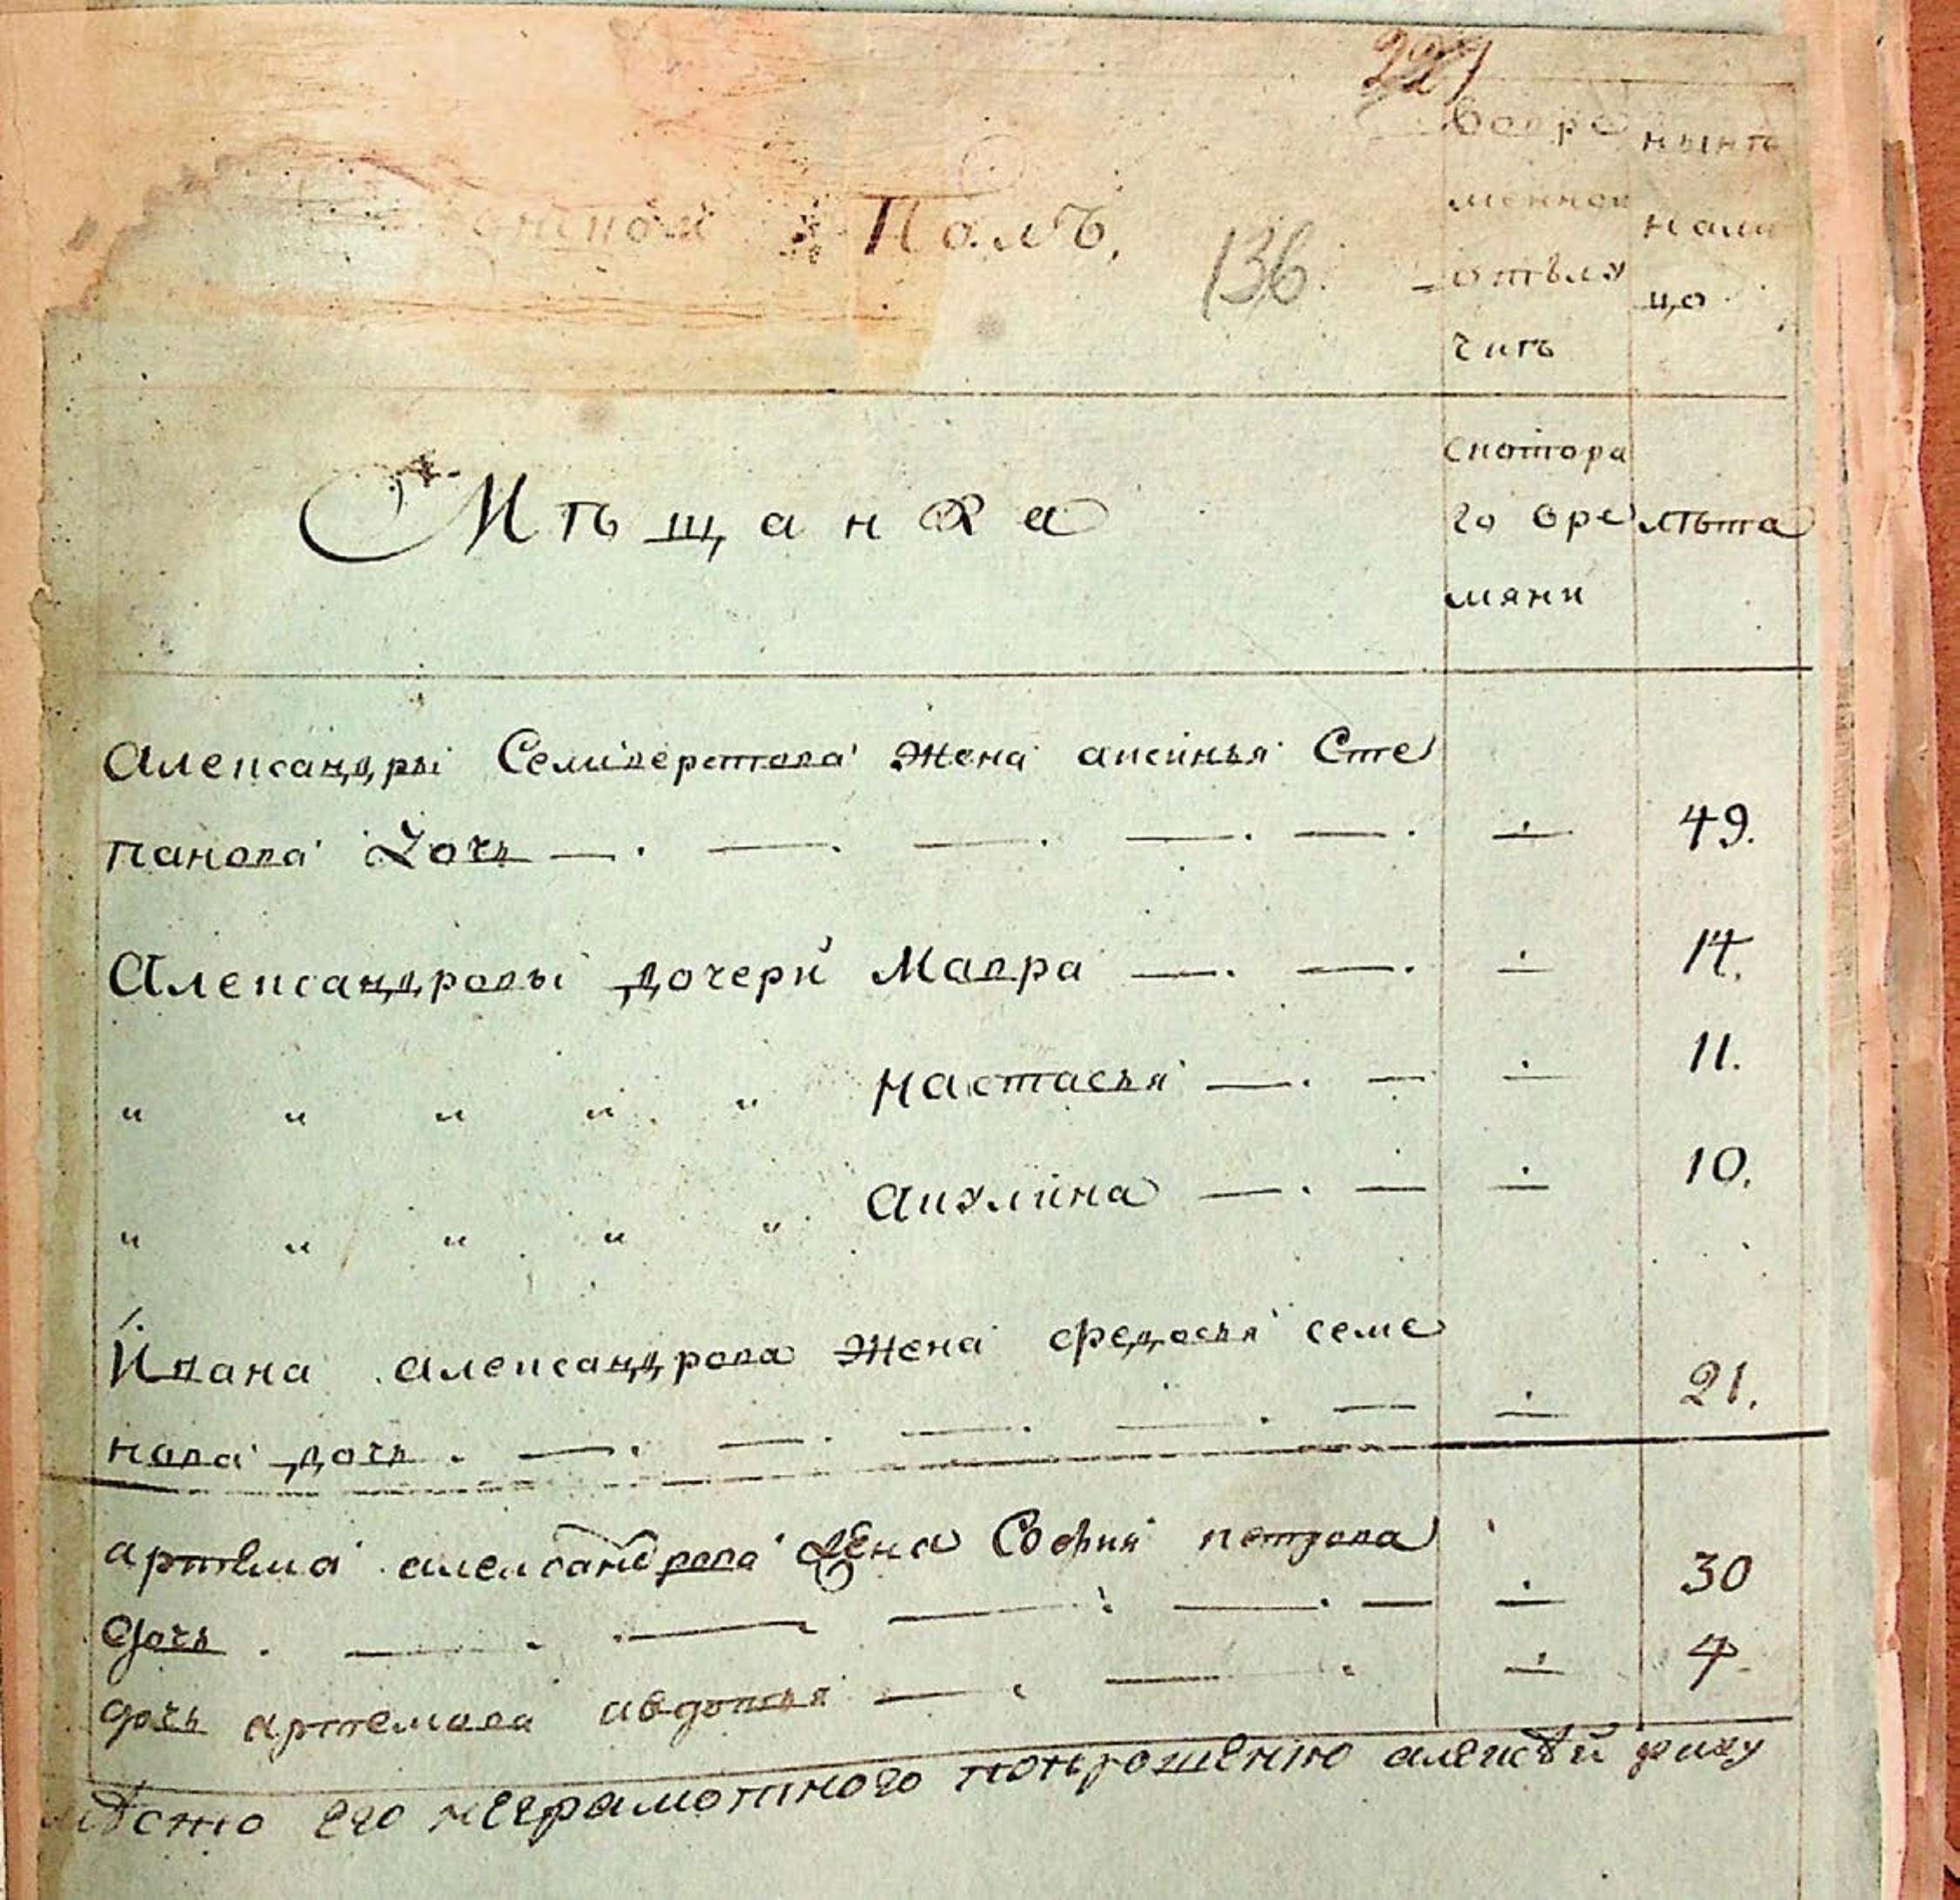 Полъ,
136
вовре
менной
отълу
чнѣ
нынѣ
нали
цо
Мѣщанка
скотора
го вре
мяни
лѣта
Александры Семиверстова Жена аксинья Сте
панова Дочь — . — . — . — . — . ÷ 49.
Александровы дочери Мавра — . — . ÷ 14.
" " " " " настасья — . — ÷ 11.
" " " " " Акулина — . — ÷ 10.
Ивана александрова Жена федосья семе
нова дочь . — . — . — . — . — ÷ 21.
артема александрова Жена София петрова
дочь . — . — — . — . — ÷ 30
дочь артемова авдотья — . — . ÷ 4
его неграмотного попрошению алексей руку